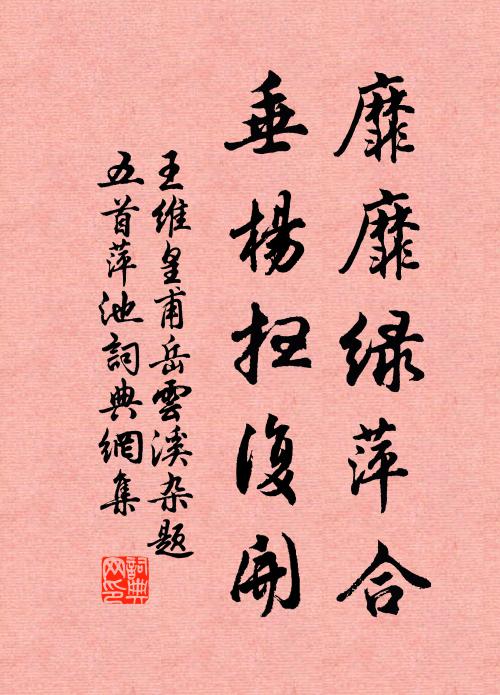 靡靡绿萍合
垂杨扫復开
王维皇甫岳雲溪杂题
五首萍池詞典網集
詞典
网印